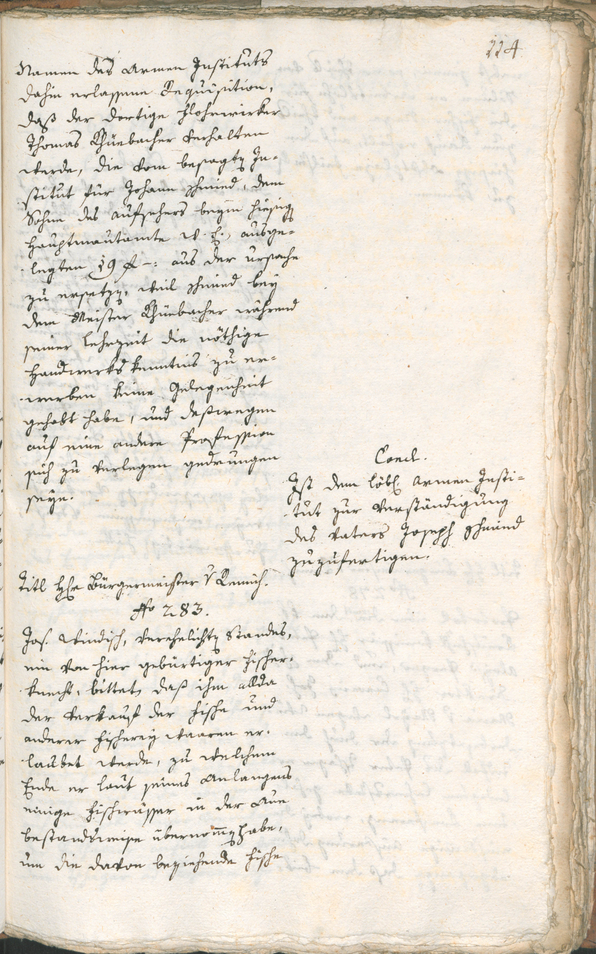 114.
Namen des Armen Instituts
dahin erlassene Requisition,
daß der dortige
Thomas Rhünbacher verhalten
werde, die vom besagtn In-
stitut für Johann Schmid, dem
Sohne des Aufsehers beym hiesig
Hauptmautamte ausge-
legten 19 f –: aus der Ursache
zu ersetzn, weil Schmid bey
dem Meister Rhünbacher während
seiner Lehrzeit die nöthige
Handwerkskenntnis zu er-
werben keine Gelegenheit
gehabt habe, und deßwegen
auf eine andere Profession
sich zu verlegen gedrungen
seye.
Concl.
Ist dem löbl. Armen Insti-
tut zur Verständigung
des Vaters Joseph Schmid
zuzufertigen.
Titl Hr Bürgermeister v
No 283.
Jos. Windisch, verehelichtn Standes,
ein von hier gebürtiger Fischer-
knecht, bittet, daß ihm allda
der Verkauf der Fische und
anderer Fischerey waaren er-
laubet werde, zu welchem
Ende er laut seines Anlangens
einige Fischwässer in der Aue
bestandsweise übernommen habe,
um die davon beziehende Fische